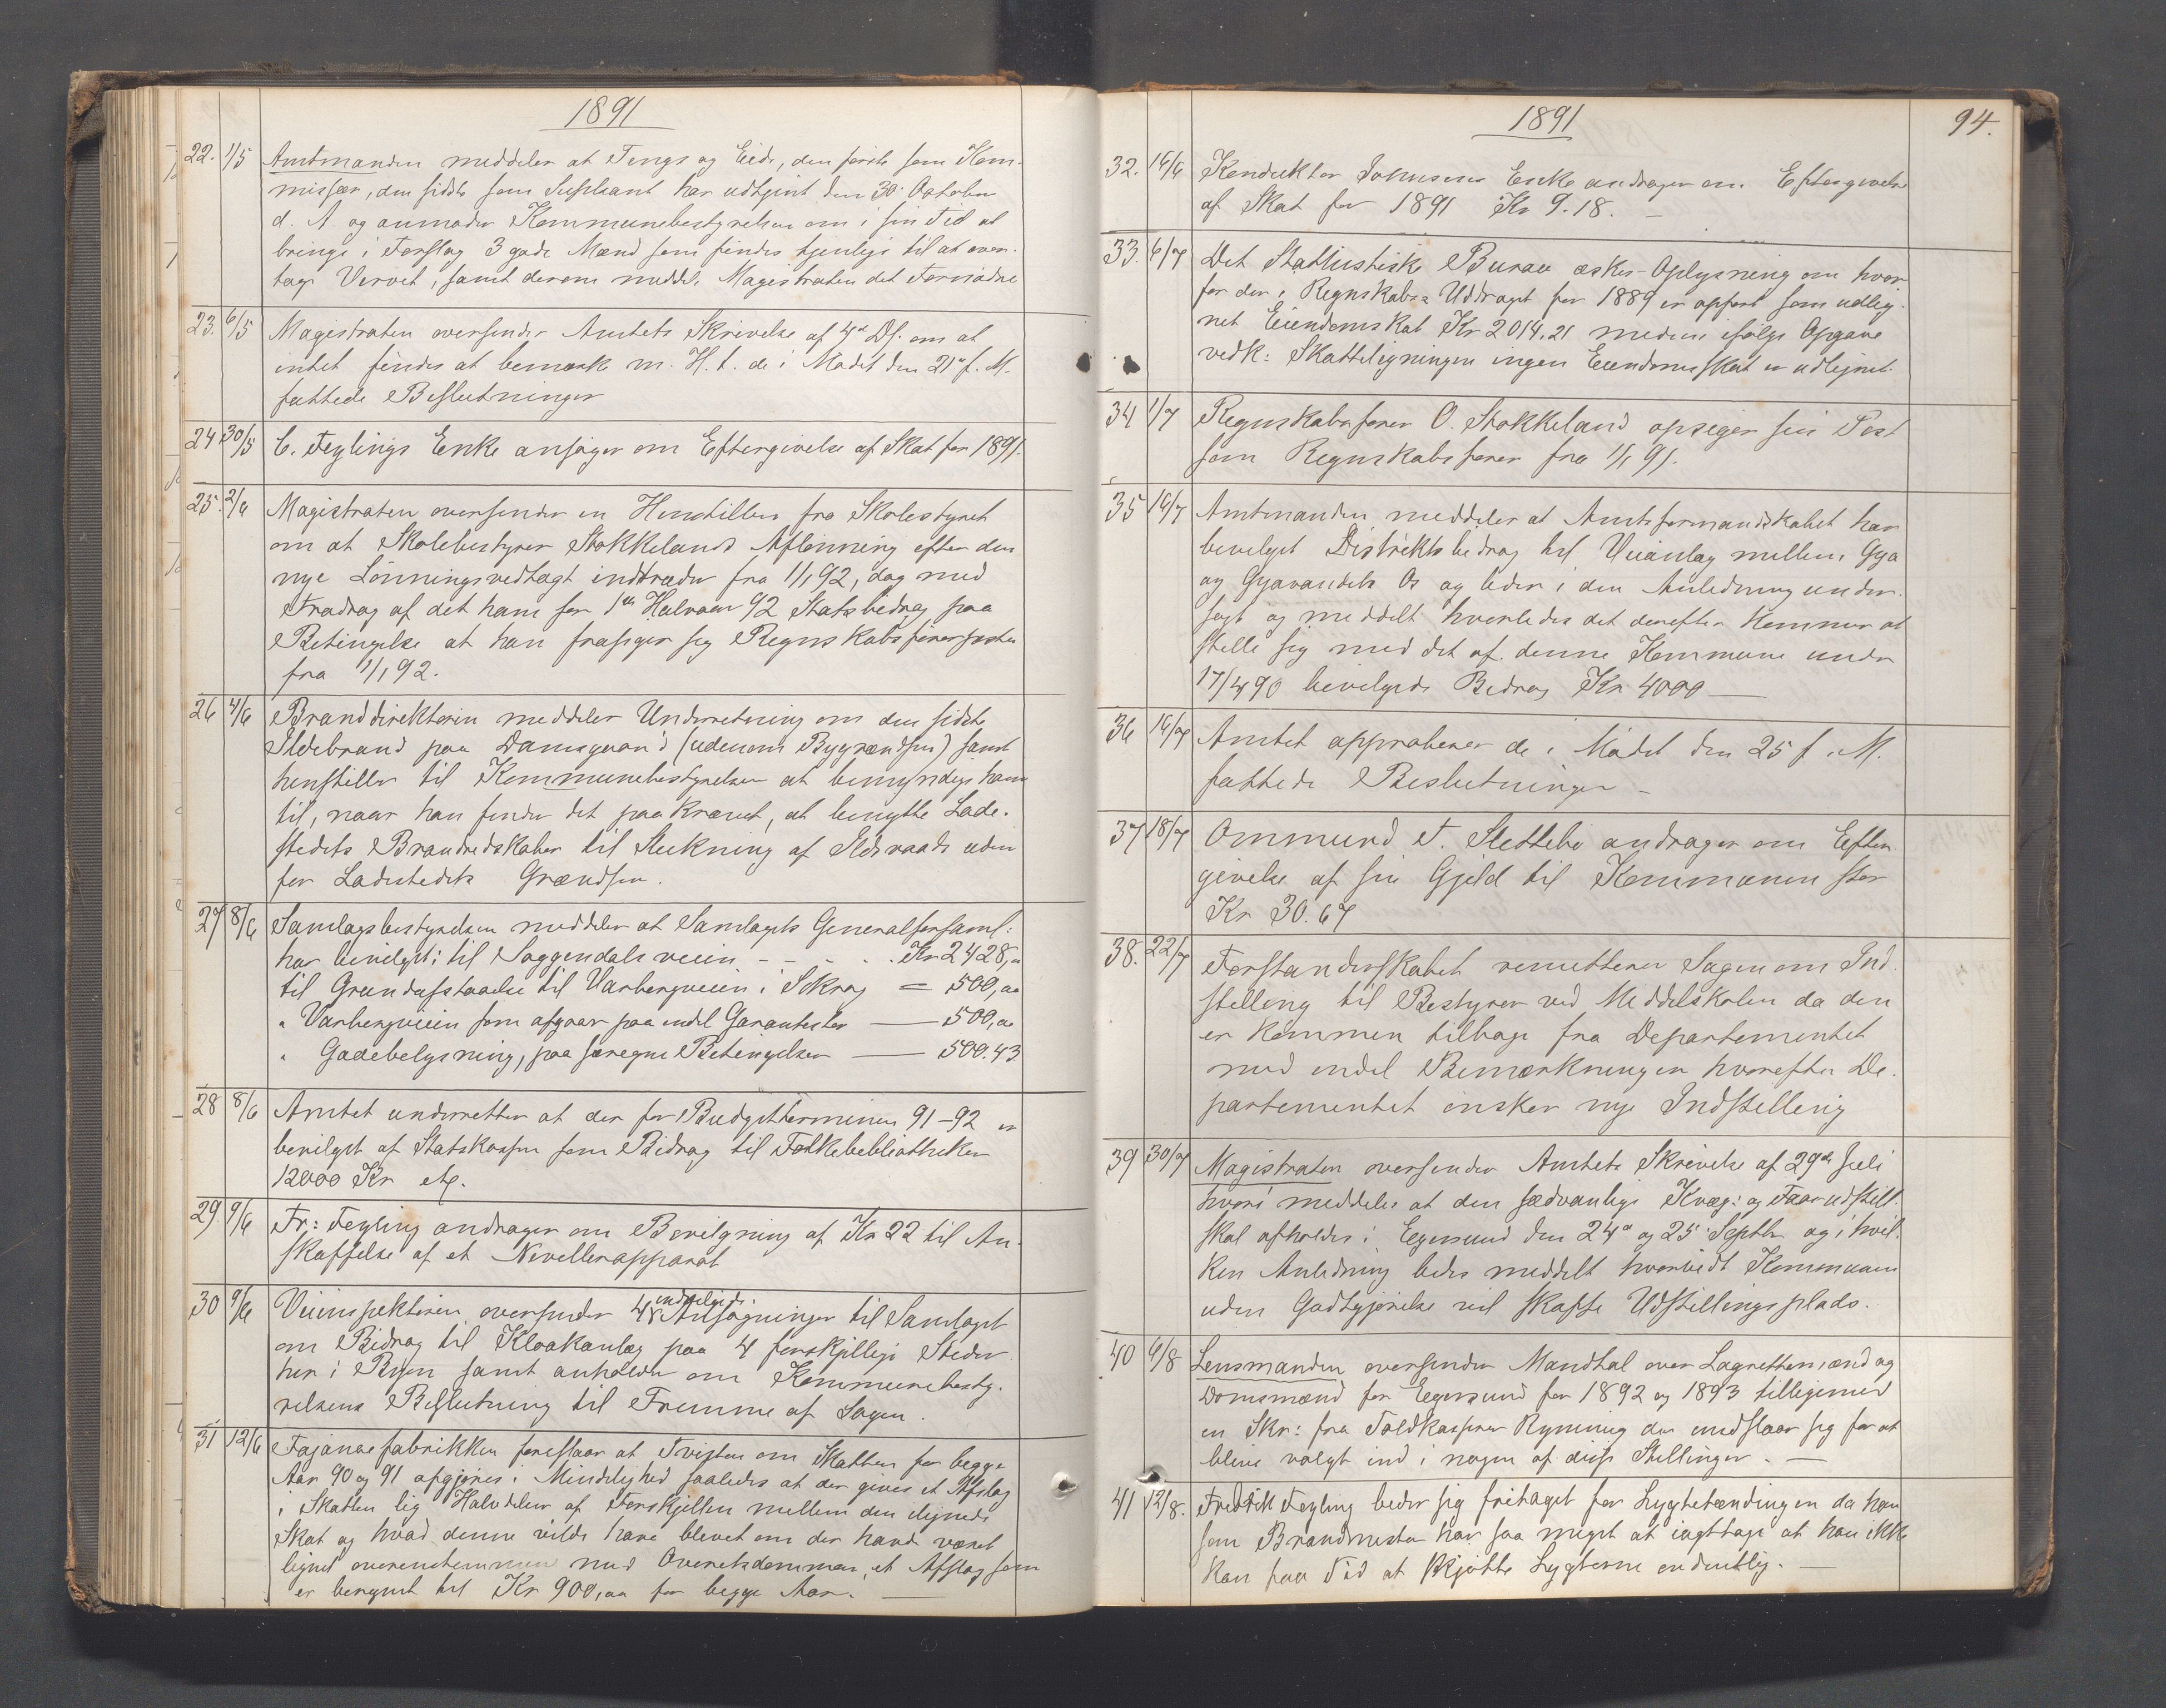 1891
22. 1/5 Amtmanden meddeler at Tengs og Eide, den første som Kom-
missær, den sidste som Supleant har udtjent den 30. October
d. A og anmoder Kommunebestyrelsen om i sin Tid at
bringe i Forslag 3 gode Mænd som findes tjenlige til at over-
tage Vervet, samt derom meddl. Magistraten det Fornødne
23. 6/5 Magistraten oversender Amtets Skrivelse af 4de Ds. om at
intet findes at bemærke m. H. t. de i Mødet den 21de f. M.
fattede Beslutninger
24 30/5 C. Feylings Enke ansøger om Eftergivelse af Skat for 1891.
25. 2/6 Magistraten oversender en Henstillen fra Skolestyret
om at Skolebestyrer Stokkelands Aflønning efter den
nye Lønningsvedtægt indtræder fra 1/1 92, dog med
Fradrag af det ham for 1ste Halvaar 92 Statsbidrag paa
Betingelse at han frasiger sig Regnskabsførerposten
fra 1/1 92.
26 4/6 Branddirektøren meddeler Underretning om den sidste
Ildebrand paa Damsgaard (udenom Bygrændsen) samt
henstiller til Kommunebestyrelsen at bemyndige ham
til, naar han finder det paakrævet, at benytte Lade-
stedets Brandredskaber til Slukning af Ildsvaade uden
for Ladestedets Grændser.
27 8/6 Samlagsbestyrelsen meddeler at Samlagets Generalforsaml:
har bevilget: til Soggendalsveien - - - - Kr 2428,00
til Grundafstaaelse til Varbergveien i Sokrog = 500,00
" Varbergveien som afgaar paa endel Garantister — 500,00
" Gadebelysning, paa særegne Betingelser — 500.43
28 8/6 Amtet underretter at der for Budgetterminen 91-92 er
bevilget af Statskassen som Bidrag til Folkebibliotheker
12000 Kr etc.
29 9/6 Fr: Feyling andrager om Bevilgning af Kr 22 til An-
skaffelse af et Nivellerapparat
30 9/6 Veiinspektøren oversender 4 indvilgede Ansøgninger til Samlaget
om Bidrag til Kloakanlæg paa 4 forskjellige Steder
her i Byen samt anholder om Kommunebesty-
relsens Beslutning til Fremme af Sagen.
31 12/6 Fajancefabrikken foreslaar at Tvisten om Skatten for begge
Aar 90 og 91 afgjøres i Mindelighed saaledes at der gives et Afslag
i Skatten lig Halvdelen af Forskjellen mellem den ilignede
Skat og hvad denne vilde have blevet om der havde været
lignet overenstemmen med Overetsdommen, et Afslag som
er beregnet til Kr 900,00 for begge Aar. —
1891
94.
32. 16/6 Konduktør Johnsens Enke andrager om Eftergivelse
af Skat for 1891 Kr 9.18. —
33. 6/7 Det Statistiske Bureau æsker Oplysning om hvor
for der i Regnskabs-Uddraget for 1889 er opført som udlig-
net Eiendomskat Kr 2014.21 medens ifølge Opgave
vedk: Skatteligningen ingen Eiendomsskat er udlignet.
34 1/7 Regnskabsfører O. Stokkeland opsiger sin Post
som Regnskabsfører fra 1/1 91.
35 14/7 Amtmanden meddeler at Amtsformandskabet har
bevilget Distriktsbidrag til Veianlæg mellem Gya
og Gyavandets Os og beder i den Anledning under-
søgt og meddelt hvorledes det derefter kommer at
stille sig med det af denne Kommune under
17/4 90 bevilgede Bidrag Kr 4000 —
36 14/7 Amtet approberer de i Mødet den 25 f. M.
fattede Beslutninger —
37 18/7 Ommund T. Slettebø andrager om Efter-
givelse af sin Gjeld til Kommunen stor
Kr 30.67
38. 22/7 Forstanderskabet remitterer Sagen om Ind-
stilling til Bestyrer ved Middelskolen da den
er kommen tilbage fra Departementet
med endel Bemærkninger hvorefter De-
partementet ønsker nye Indstilling
39 30/7 Magistraten oversender Amtets Skrivelse af 29de Juli
hvori meddeles at den sædvanlige Kvæg: og Faarudstill.
skal afholdes i Egersund den 24de og 25 Septbr og i hvil-
ken Anledning bedes meddelt hvorvidt Kommunen
uden Godtgjørelse vil skaffe Udstillingsplads.
40 6/8 Lensmanden oversender Mandtal over Lagrettemænd og
Domsmænd for Egersund for 1892 og 1893 tilligemed
en Skr: fra Toldkasserer Rynning der undslaar sig for at
blive valgt ind i nogen af disse Stillinger. —
41 12/8. Fredrik Feyling beder sig fritaget for Lygtetændingen da han
som Brandmester har saa meget at iagttage at han ikke
kan faa Tid at skjøtte Lygterne ordentlig. —